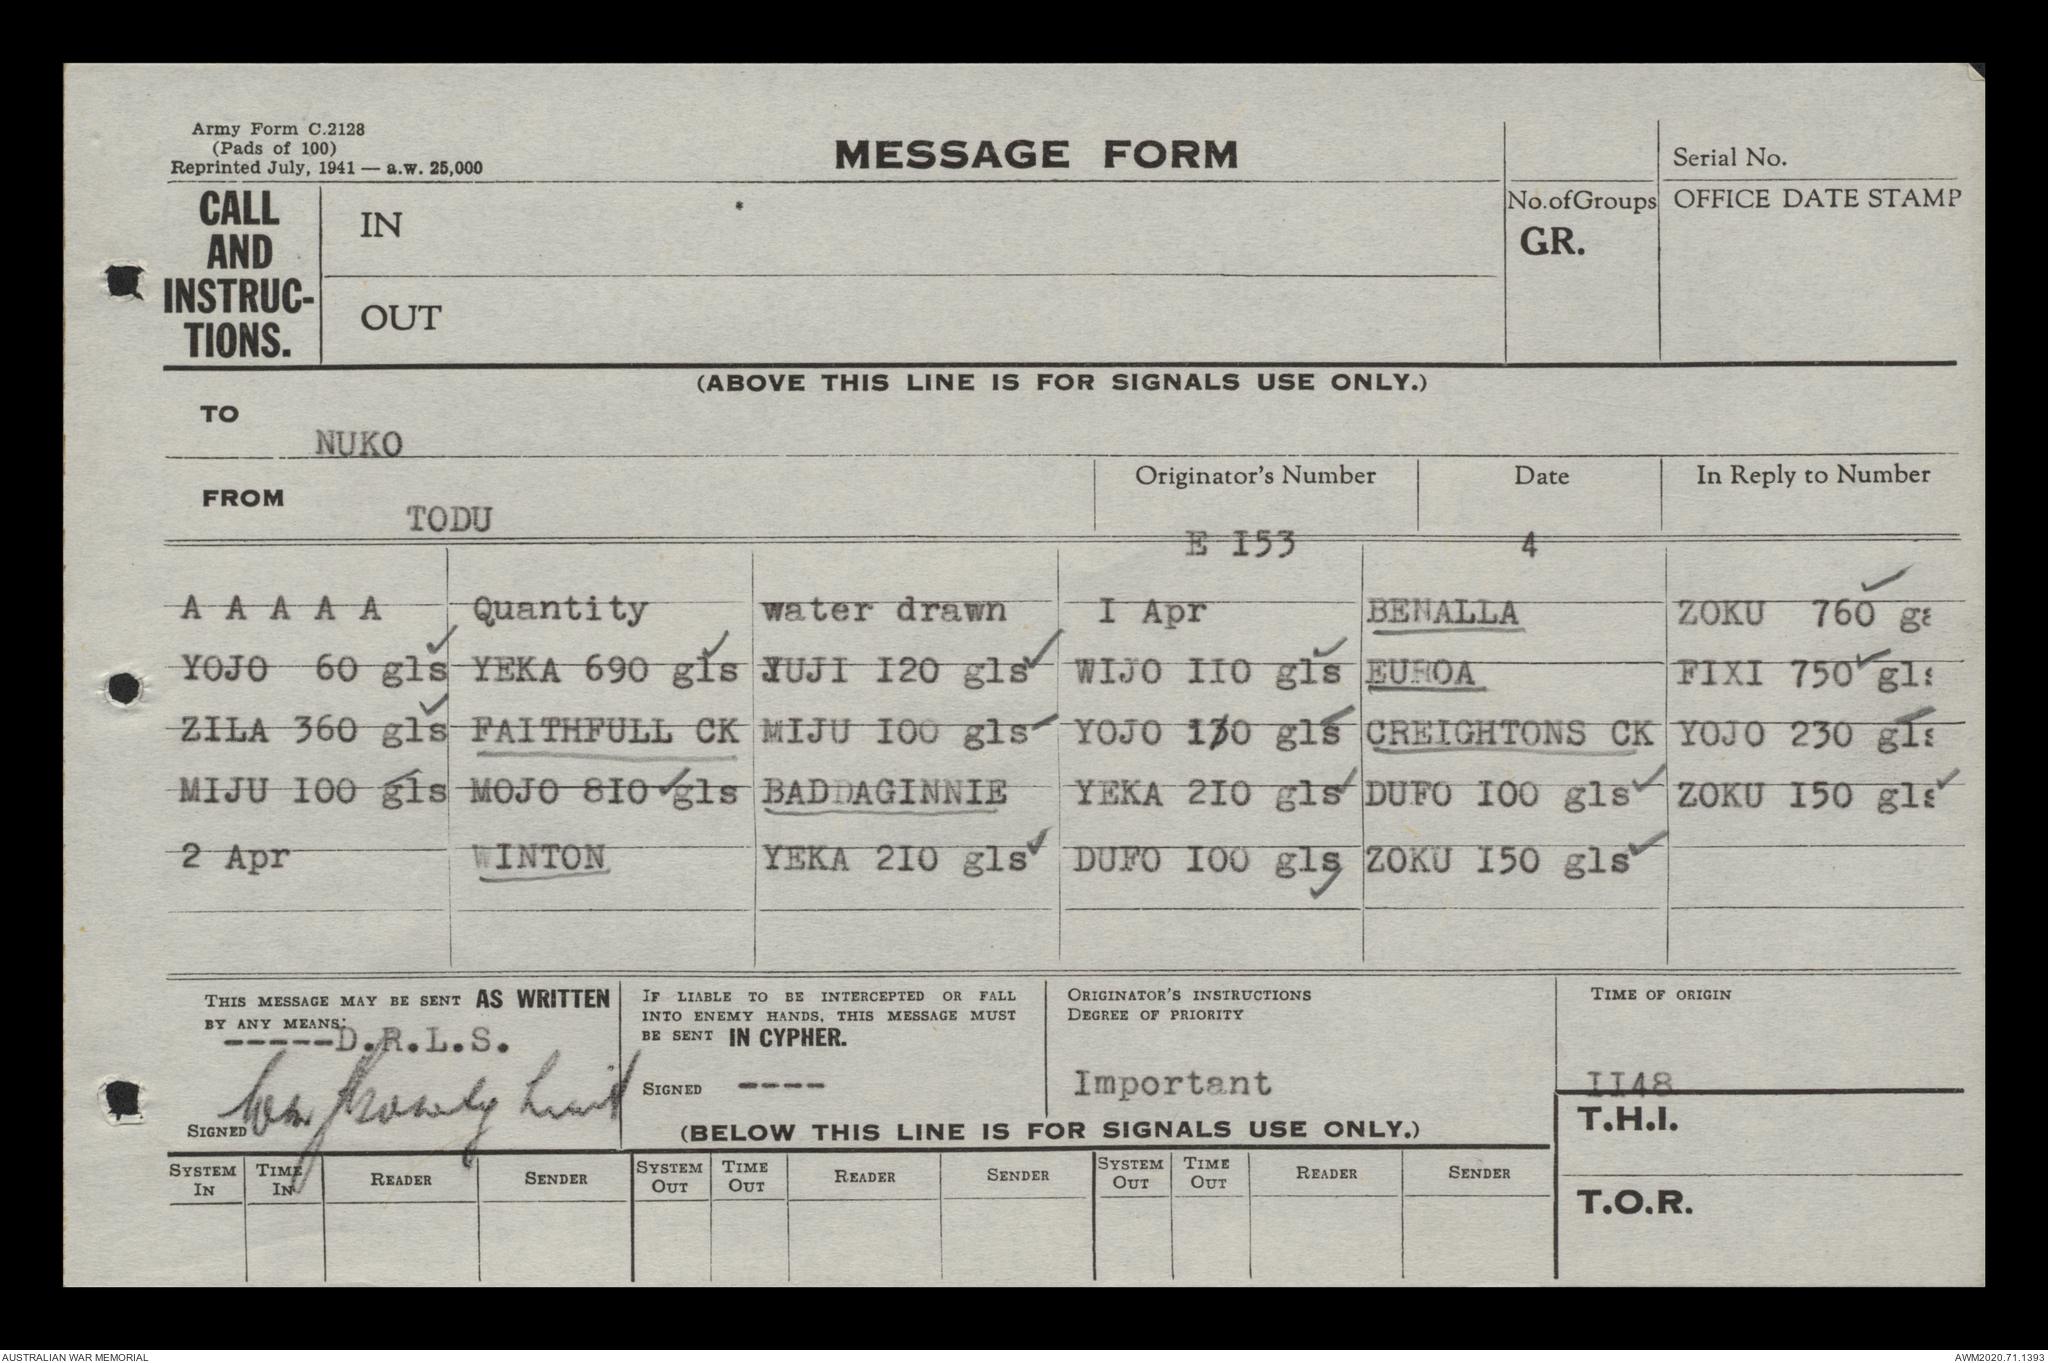 Army Form C.2128
(Pads of 100)
Reprinted July, 1941 — a.w. 25,000
MESSAGE FORM
Serial No.
CALL AND INSTRUC-TIONS.
IN
No.of Groups
GR.
OFFICE DATE STAMP
OUT
(ABOVE THIS LINE IS FOR SIGNALS USE ONLY.)
TO
NUKO
FROM
TODU
Originator's Number
Date
In Reply to Number
E I53
4
A A A A A Quantity water drawn I Apr BENALLA ZOKU 760 gs
YOJO 60 gls YEKA 690 gls YUJI I20 gls WIJO II0 gls EUROA FIXI 750 gls
ZILA 360 gls FAITHFULL CK MIJU I00 gls YOJO 130 gls CREIGHTONS CK YOJO 230 gls
MIJU I00 gls MOJO 8I0 gls BADDAGINNIE YEKA 2I0 gls DUFO I00 gls ZOKU I50 gls
2 Apr WINTON YEKA 2I0 gls DUFO I00 gls ZOKU I50 gls
THIS MESSAGE MAY BE SENT AS WRITTEN
BY ANY MEANS:
-----D.R.L.S.
SIGNED
IF LIABLE TO BE INTERCEPTED OR FALL
INTO ENEMY HANDS, THIS MESSAGE MUST
BE SENT IN CYPHER.
SIGNED ----
ORIGINATOR'S INSTRUCTIONS
DEGREE OF PRIORITY
Important
TIME OF ORIGIN
II48
(BELOW THIS LINE IS FOR SIGNALS USE ONLY.)
T.H.I.
SYSTEM IN TIME IN READER SENDER SYSTEM OUT TIME OUT READER SENDER SYSTEM OUT TIME OUT READER SENDER
T.O.R.
AUSTRALIAN WAR MEMORIAL
AWM2020.71.1393